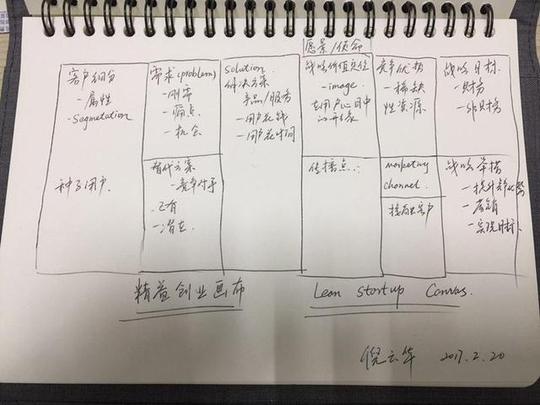 愿景/使命
客户细分
-属性
-Segmetation
种子用户
需求(problem)
-刚需
-痛点
-机会
替代方案
-竞争对手
已有
-潜在
solution
解决方案
产品/服务
-用户花钱
-用户花时间
战略价值定位
-image
在用户心目中
传播点:
竞争优势
-稀缺
性资源
marketing
channel
接触客户
战略目标
-财务
-非财务
战略举措
-营销
-实现目标
精益创业画布
Lean Startup Canvas.
倪云华 2017.2.20